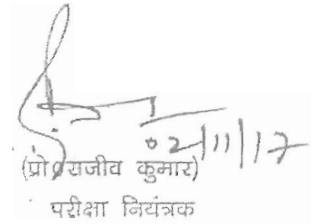 02/11/17
(प्रो० राजीव कुमार)
परीक्षा नियंत्रक